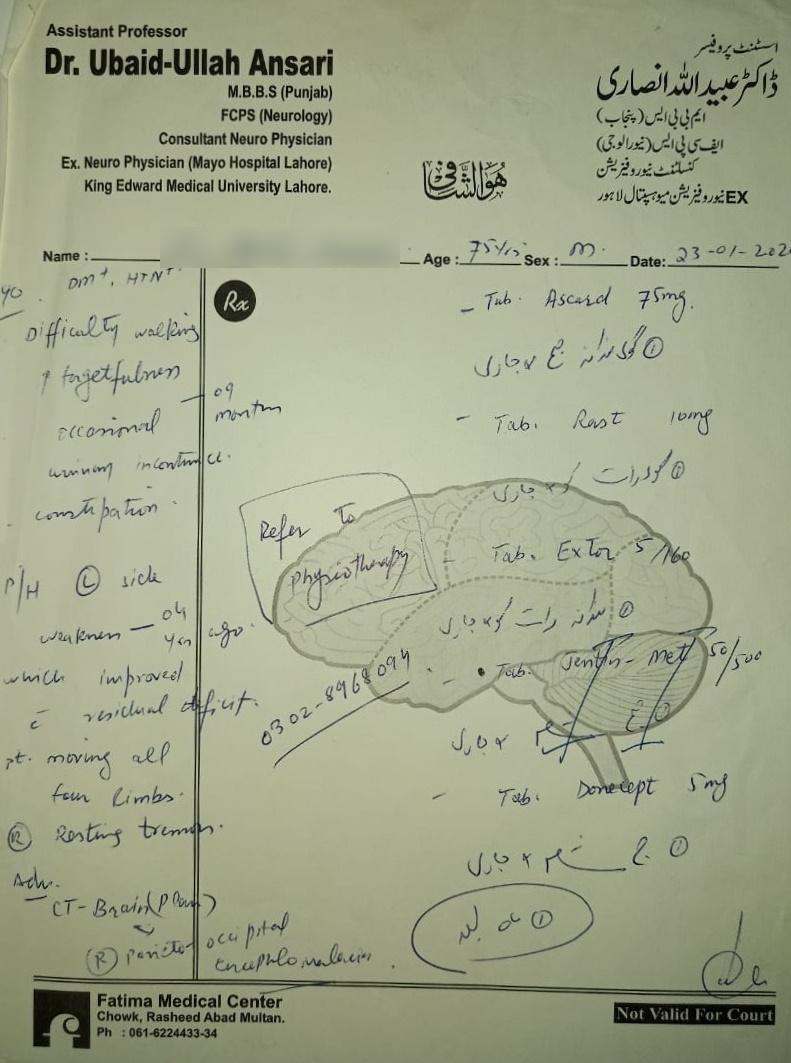 Assistant Professor
Dr. Ubaid-Ullah Ansari
M.B.B.S (Punjab)
FCPS (Neurology)
Consultant Neuro Physician
Ex. Neuro Physician (Mayo Hospital Lahore)
King Edward Medical University Lahore.
ھوالشافی
اسسٹنٹ پروفیسر
ڈاکٹر عبید اللہ انصاری
ایم بی بی ایس (پنجاب)
ایف سی پی ایس (نیورالوجی)
کنسلٹنٹ نیوروفزیشن
EX نیوروفزیشن میوہسپتال لاہور
Name : Age : 75Yrs Sex : m. Date: 23-01-202
DM+, HTN+
Difficulty walking
↑ forgetfulness
occasional
urinary incontince.
constipation.
09
months
P/H Ⓛ side
weakness — 04
Yrs ago.
which improved
c̄ residual deficit.
pt. moving all
four limbs.
Ⓡ Resting tremors.
Adv.
CT-Brain (Plain)
Ⓡ parieto occipital
encephlomalacia.
Rx
- Tab. Ascard 75mg.
① گولی روزانہ صبح × جاری
- Tab. Rast 10mg
① گولی رات کو × جاری
Refer To
physiotherapy
0302-8968094
- Tab. Extor 5/160
① روزانہ رات کو × جاری
- Tab. Jentin-Met 50/500
① صبح شام × جاری
- Tab. Donecept 5mg
① صبح شام × جاری
① ماہ بعد
Fatima Medical Center
Chowk, Rasheed Abad Multan.
Ph : 061-6224433-34
Not Valid For Court